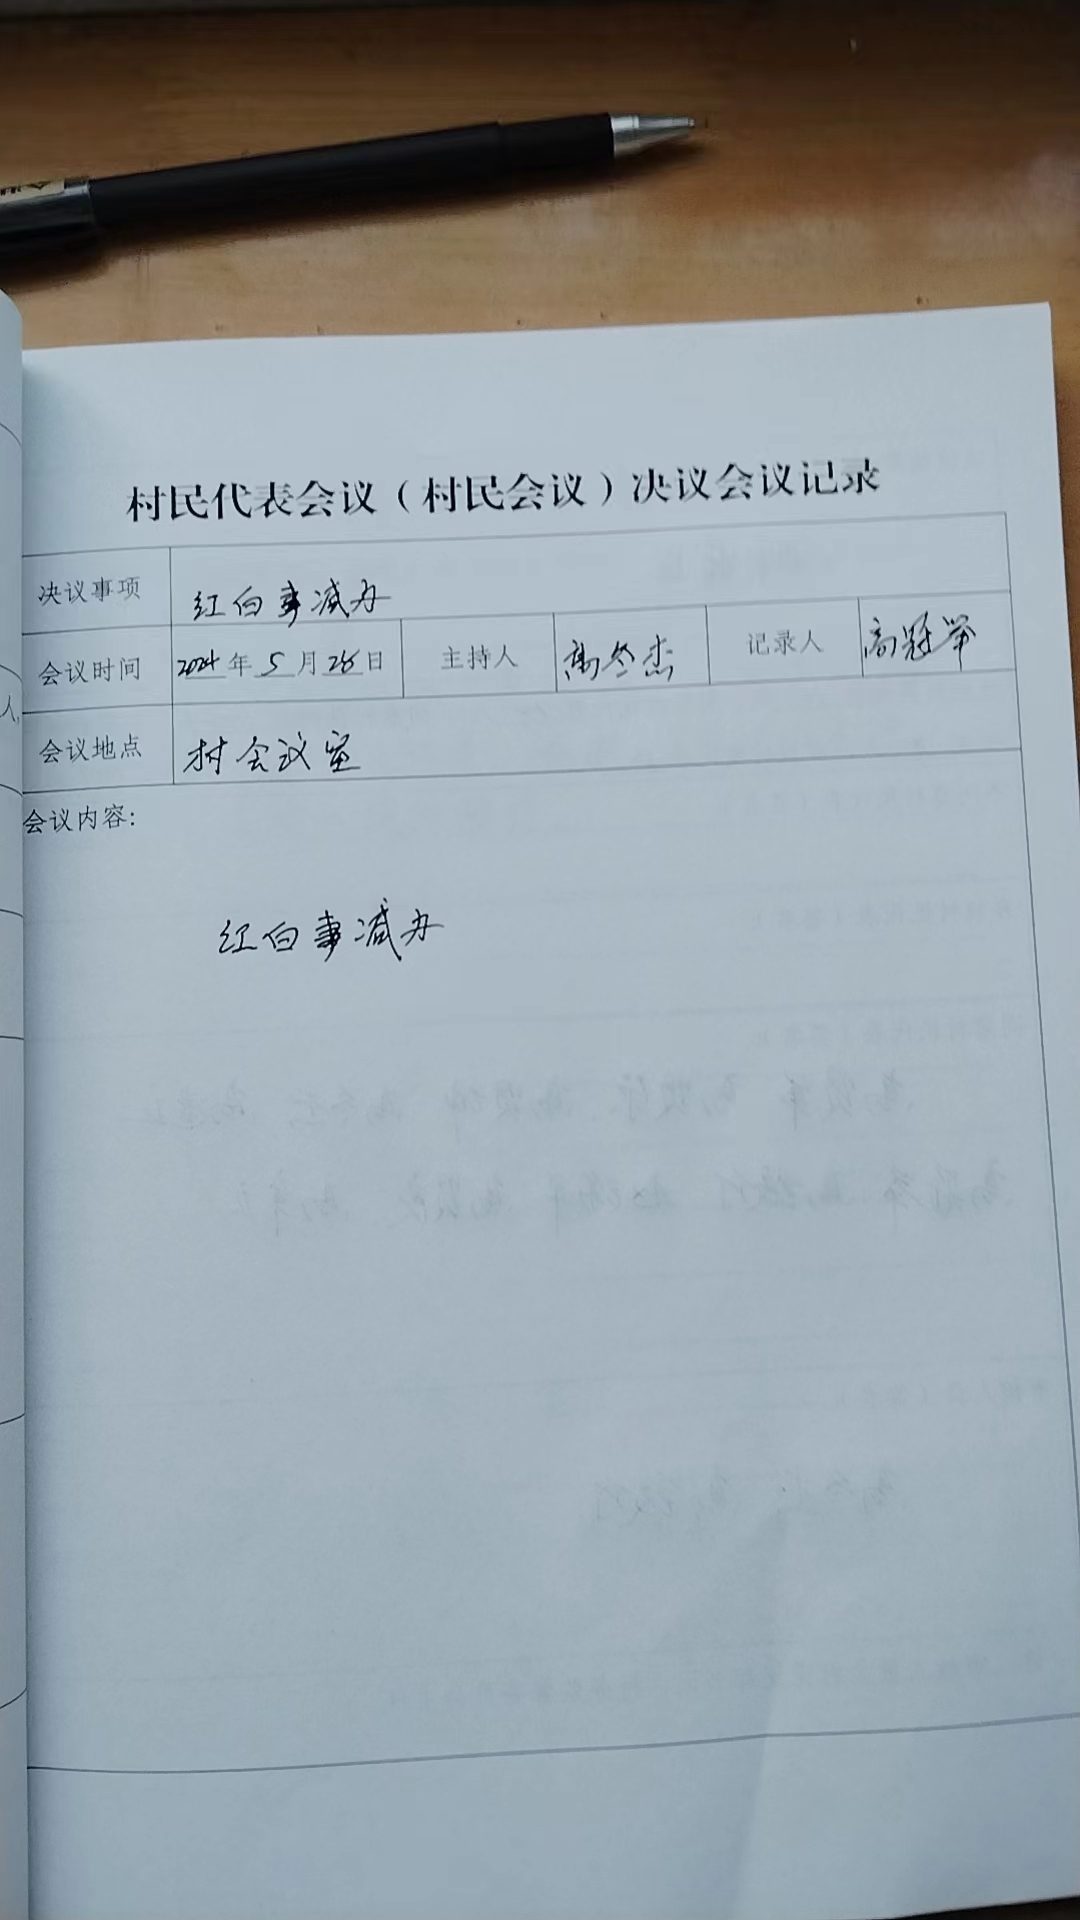 村民代表会议（村民会议）决议会议记录
决议事项 红白事减办
会议时间 2024年5月26日 主持人 高冬杰 记录人 高冠举
会议地点 村会议室
会议内容:
红白事减办
人,